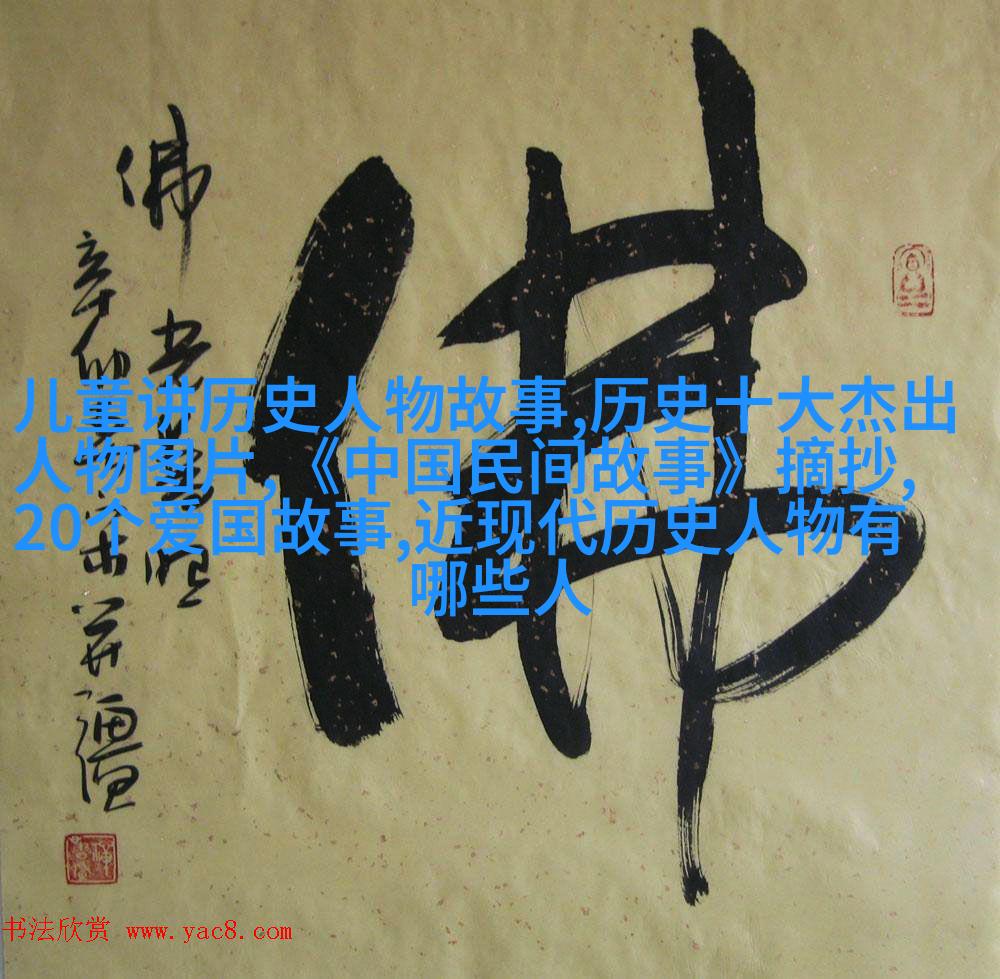 佛
佛
辛卯
儿童讲历史人物故事,历史十大杰出
人物图片,《中国民间故事》摘抄,
20个爱国故事,近现代历史人物有
哪些人
书法欣赏 www.yac8.com